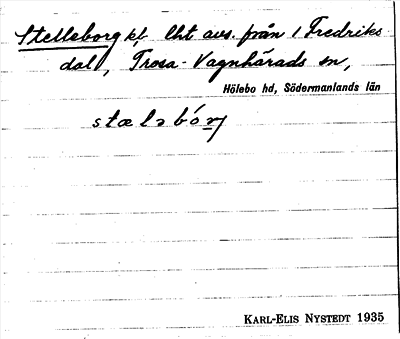 Stellsborg kf lht avs. från 1 Fredriks
dal, Trosa-Vagnhärads sn,
Hölebo hd, Södermanlands län
stælsbórj
KARL-ELIS NYSTEDT 1935